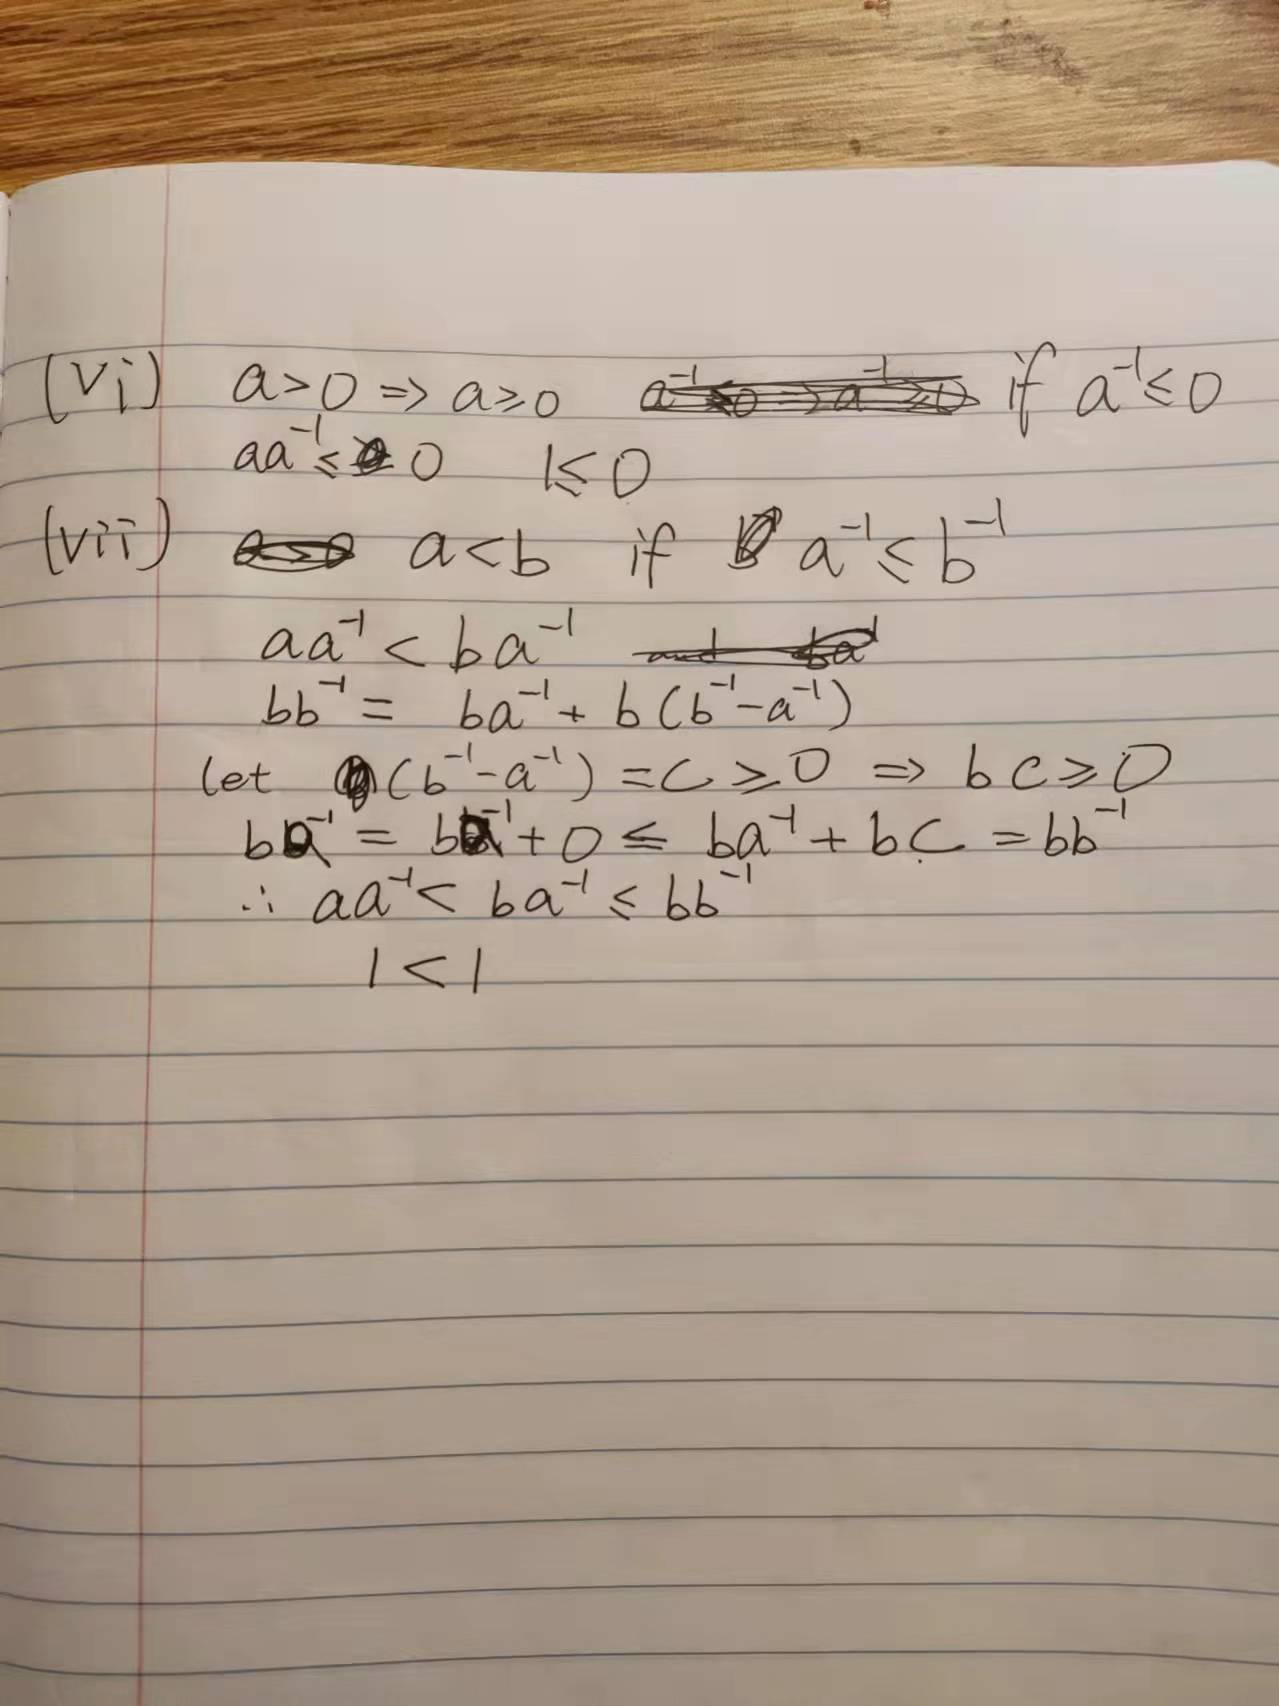 (vi) a>0 => a≥0 if a⁻¹≤0
aa⁻¹≤ 0 1≤0
(vii) a<b if a⁻¹≤b⁻¹
aa⁻¹ < ba⁻¹
bb⁻¹ = ba⁻¹ + b(b⁻¹-a⁻¹)
let (b⁻¹-a⁻¹) = c ≥ 0 => bc≥0
ba⁻¹ = ba⁻¹ + 0 ≤ ba⁻¹ + bc = bb⁻¹
∴ aa⁻¹ < ba⁻¹ ≤ bb⁻¹
1 < 1